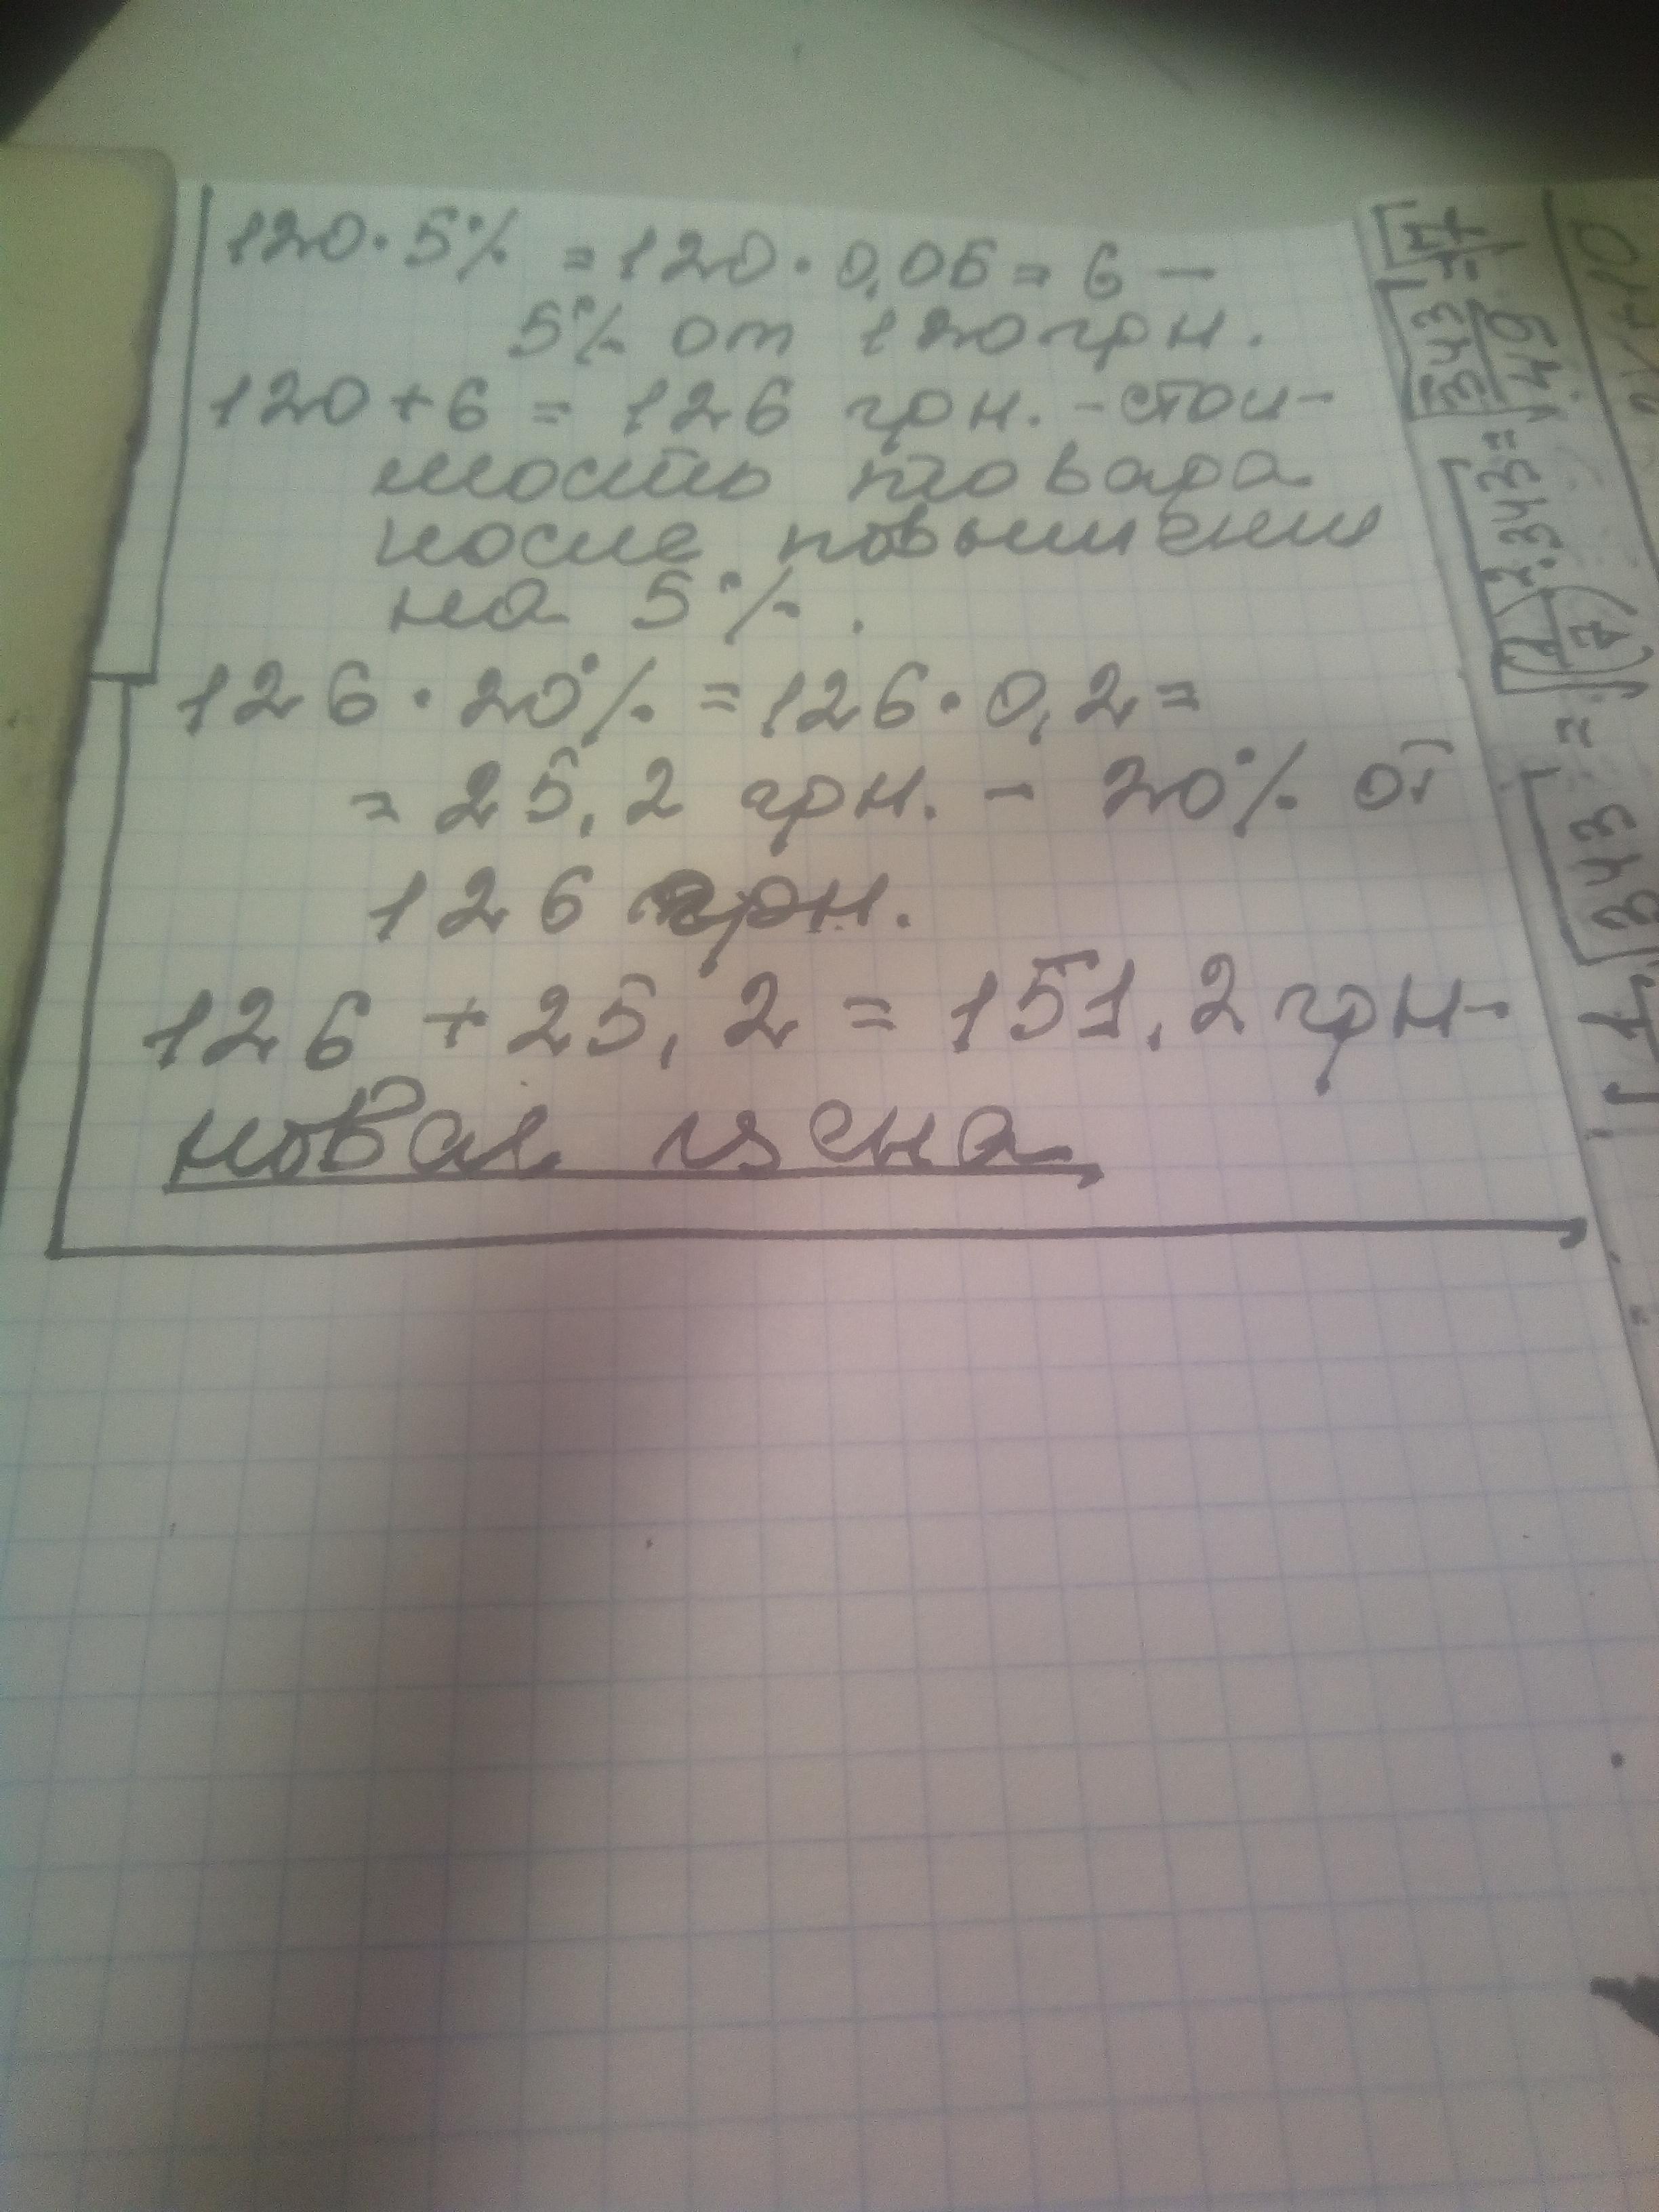 120 · 5% = 120 · 0,05 = 6 –
5% от 120 грн.
120 + 6 = 126 грн. – стои-
мость товара
после повышения
на 5%.
126 · 20% = 126 · 0,2 =
= 25,2 грн. – 20% от
126 грн.
126 + 25,2 = 151,2 грн –
новая цена